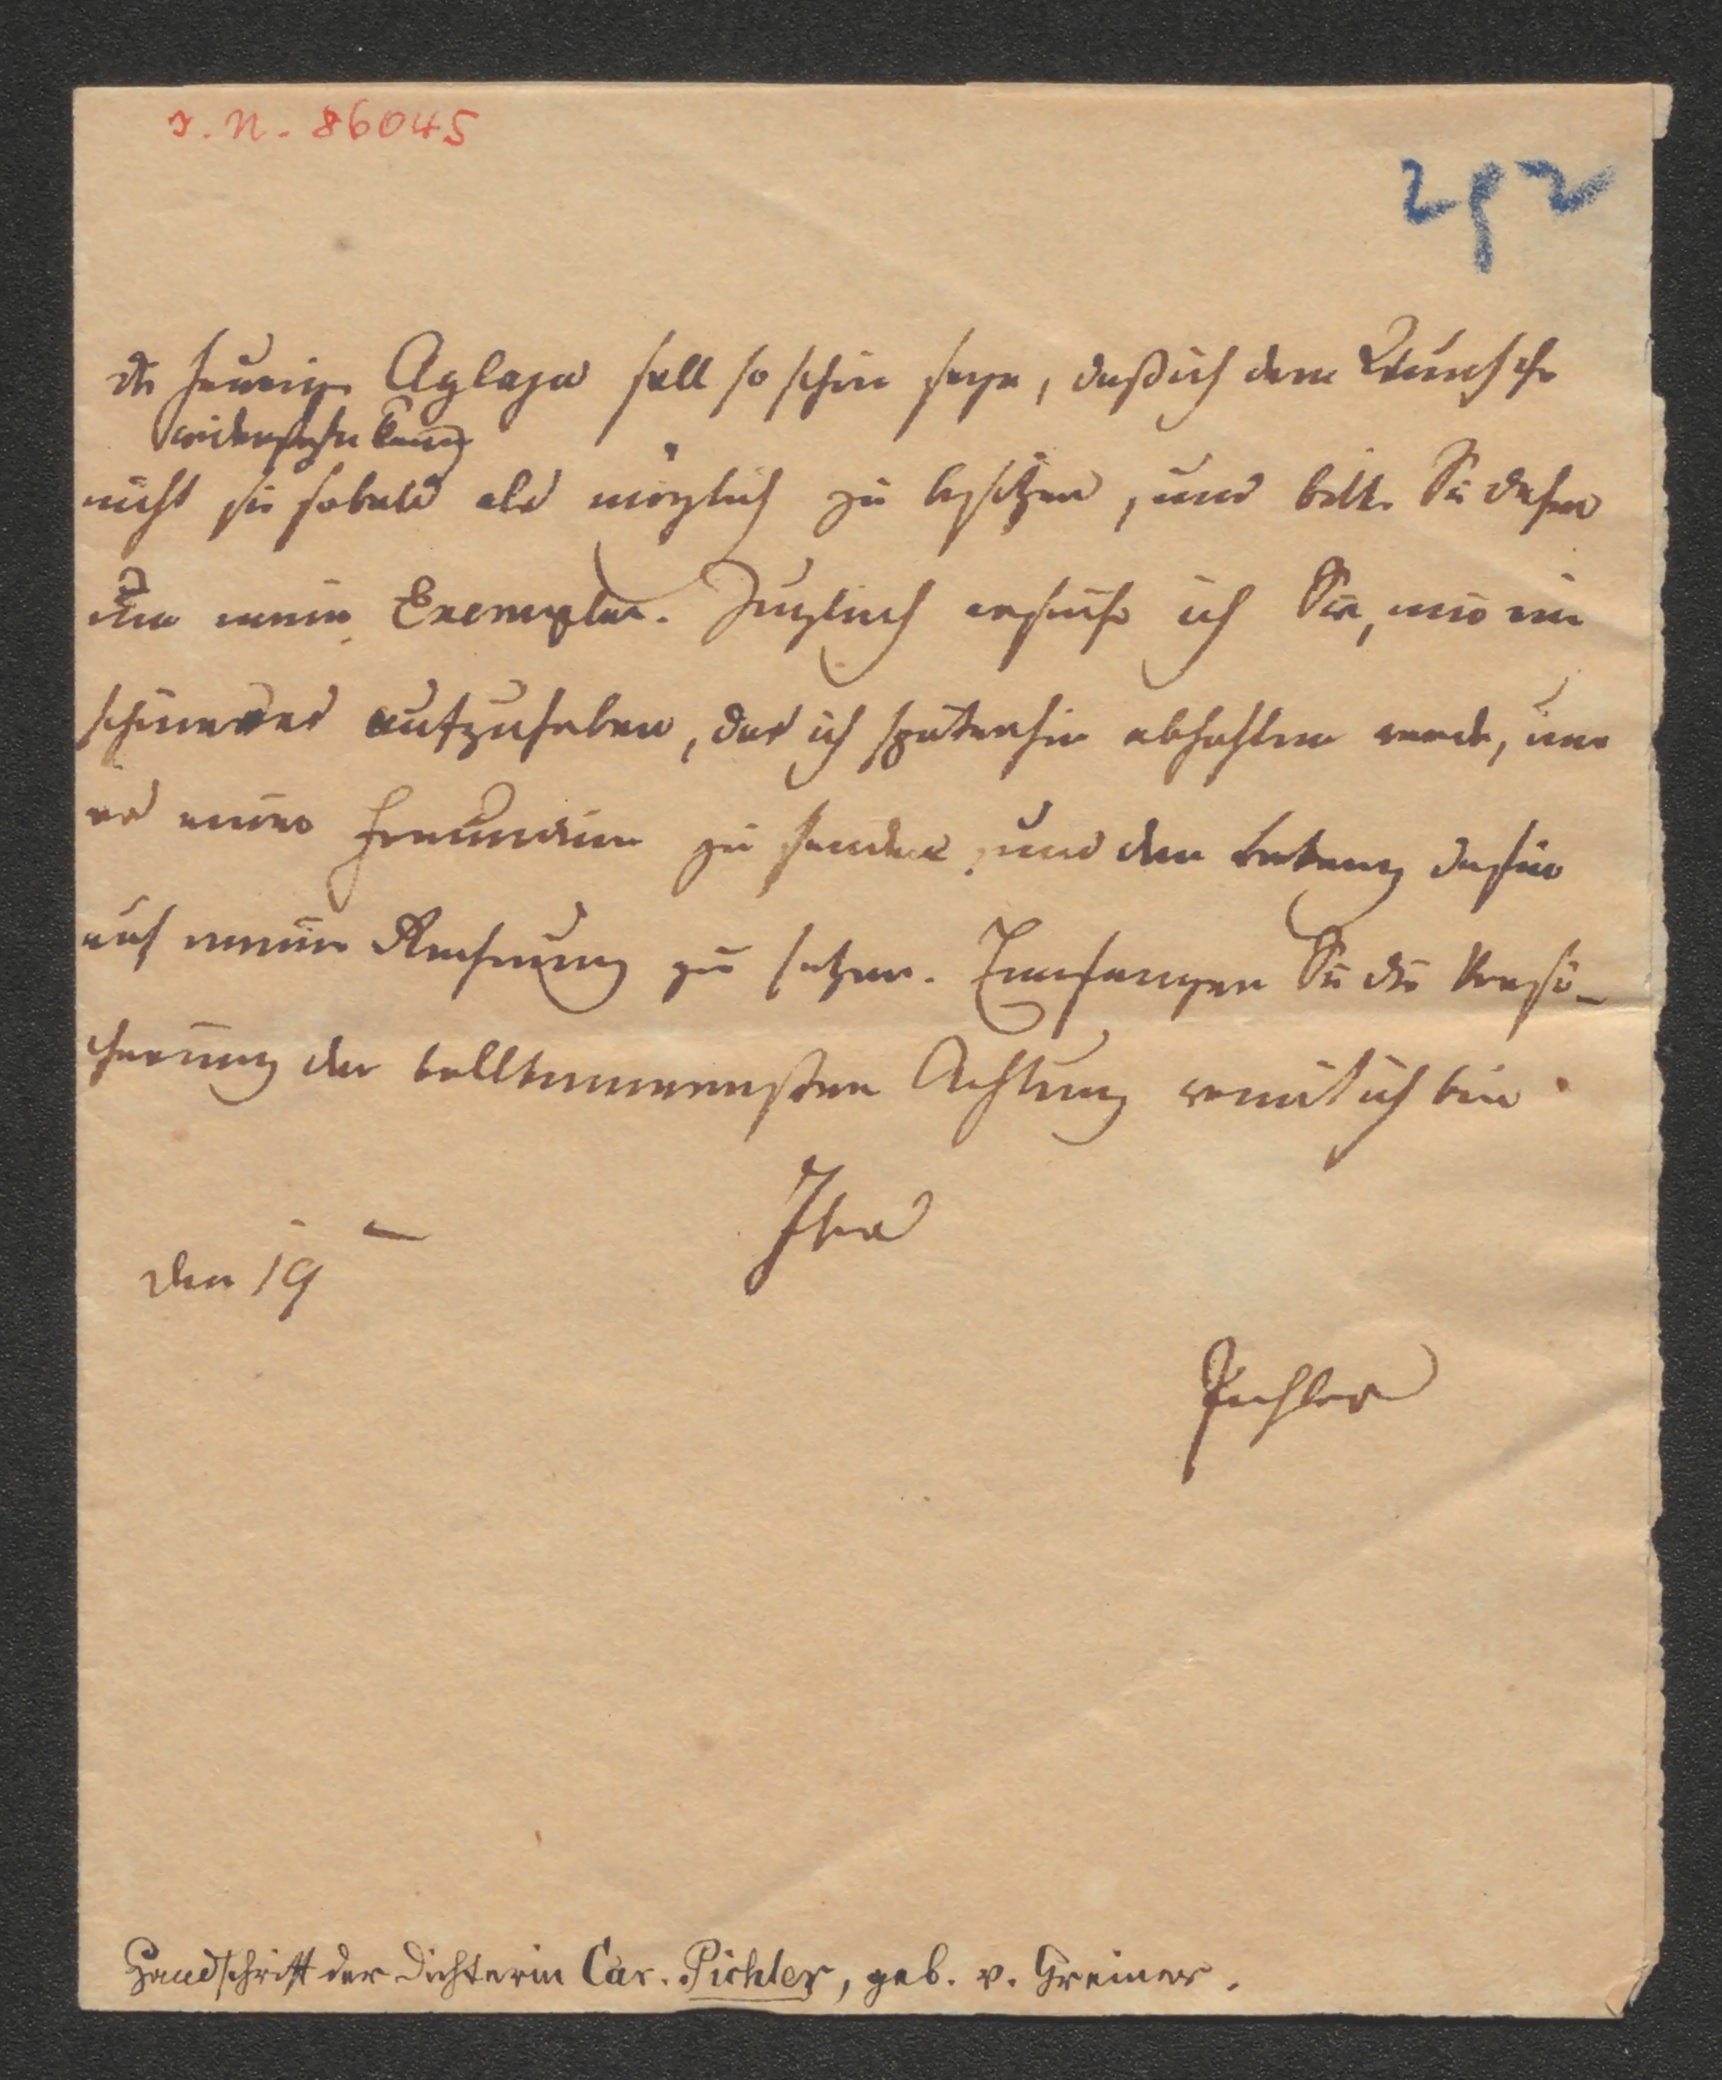 I. N. 86045
292
die heurige Aglaja soll so schön seyn, daß ich dem Wunsche
widerstehen kann
nicht sie sobald als möglich zu besitzen, und bitte Sie daher
um mein Exemplar. Zugleich ersuche ich Sie, mir ein
schöneres aufzuheben, das ich späterhin abhohlen werde, um
es einer Freundinn zu senden, und den Betrag dafür
auf meine Rechnung zu setzen. Empfangen Sie die Versi-
cherung der vollkommensten Achtung womit ich bin
Ihre
den 19
Pichler
Handschrift der Dichterin Car. Pichler, geb. v. Greiner.